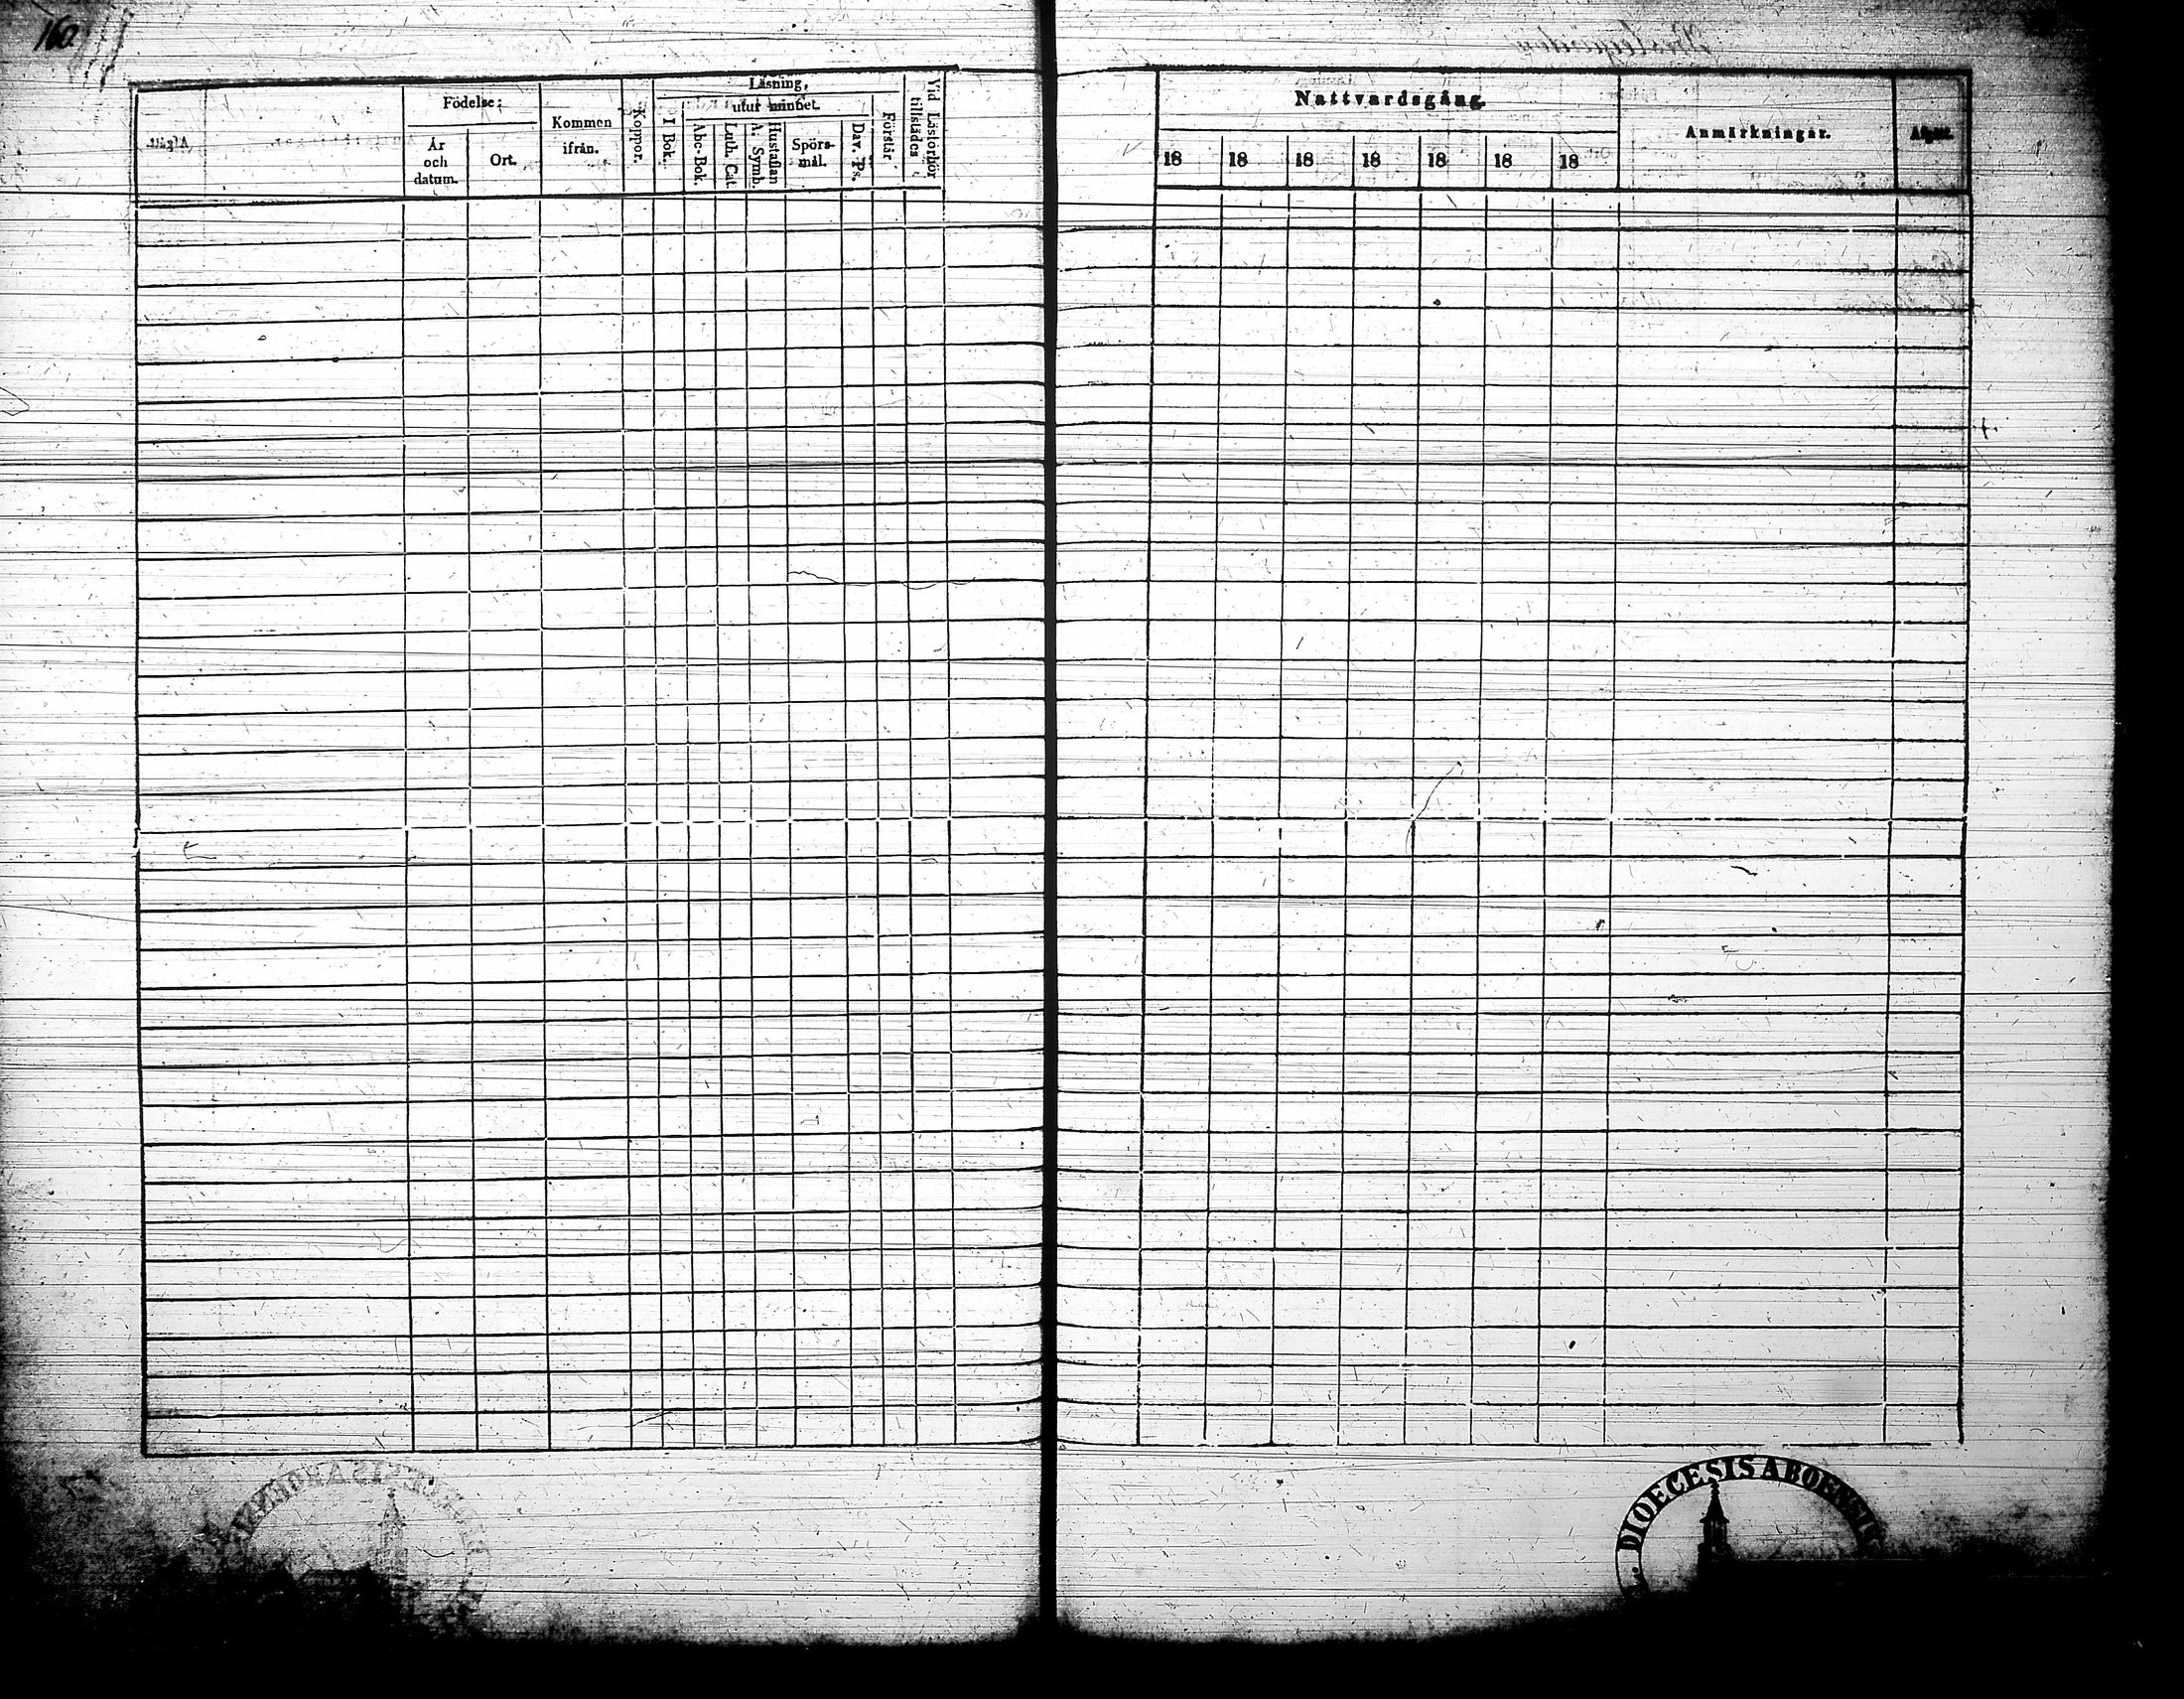 160.
Födelse:
År
och
datum.
Ort.
Kommen
ifrån.
Koppor.
Läsning,
utur minnet.
I Bok.
Abc-Bok.
Luth. Cat.
Hustaflan
A. Symb.
Spörs-
mål.
Dav. Ps.
Förstår
Vid Läsförhör
tillstädes
Nattvardsgång.
18 18 18 18 18 18 18
Anmärkningar.
DIOECESIS ABOENSIS